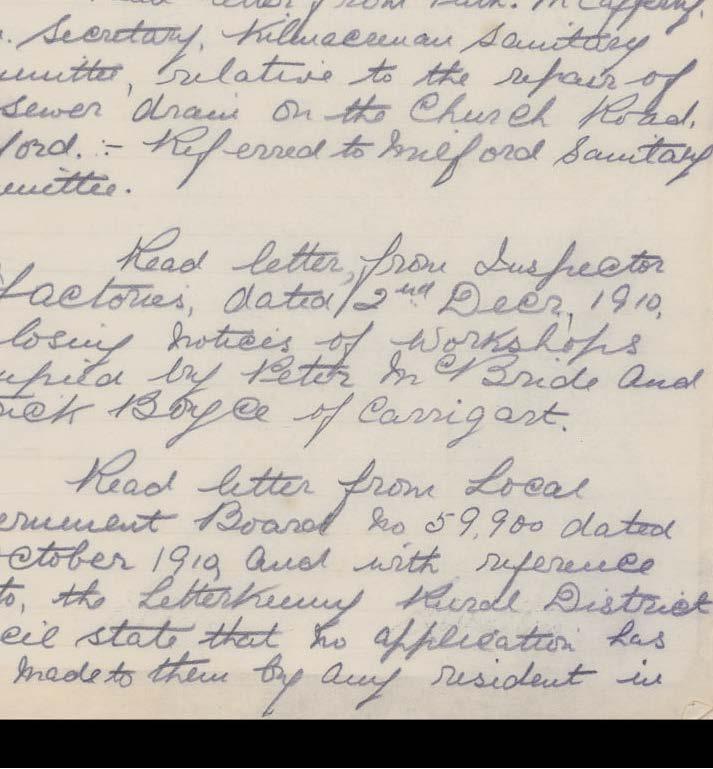 Read letter from Patk. McCafferty,
. Secretary, Kilmacrenan Sanitary
mmittee, relative to the repair of
sewer drain on the Church Road,
ford. :- Referred to Milford Sanitary
mmittee.
Read letter, from Inspector
Factories, dated 2nd Decr, 1910,
closing notices of Workshops
upied by Peter McBride and
rick Boyce of Carrigart.
Read letter from Local
ernment Board No 59,900 dated
ctober 1910 and with reference
to, the Letterkenny Rural District
cil state that no application has
made to them by any resident in